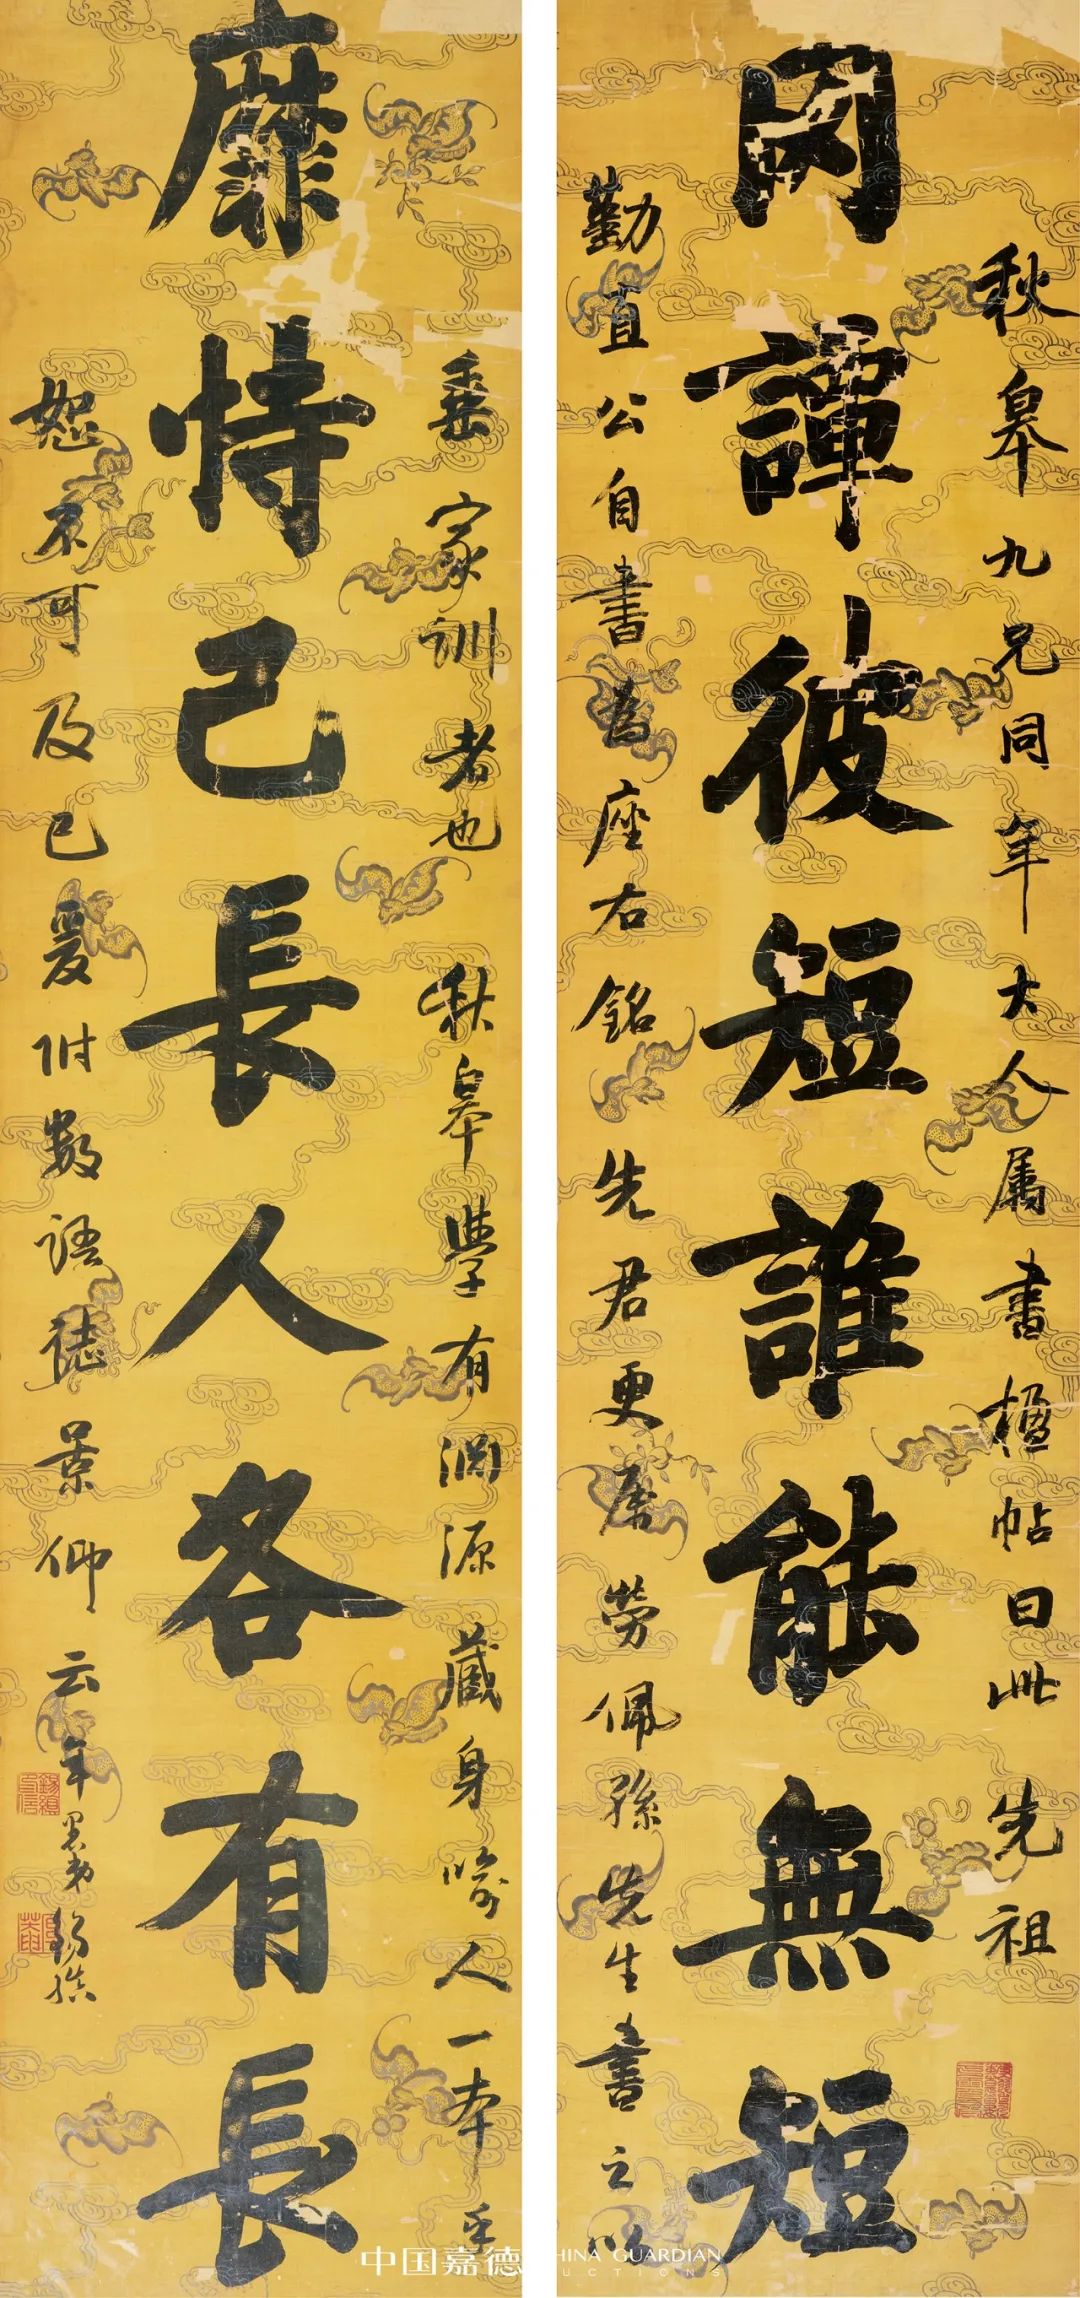 秋皋九兄同年大人属書楹帖曰此先祖
罔譚彼短誰能無短
勤直公自書為座右銘先君更属勞佩孫先生書之以
垂家訓者也秋皋學有淵源藏身喻人一本乎
靡恃己長人各有長
恕不可及已爰附數語誌景仰云年愚弟錫縝
中国嘉德
CHINA GUARDIAN
AUCTIONS